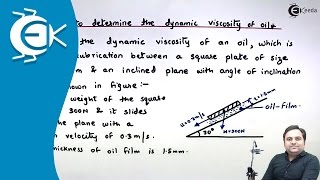 to determine the dynamic viscosity of oil
the dynamic viscosity of an oil, which is
lubrication between a square plate of size
m & an inclined plane with angle of inclination
shown in figure :-
weight of the square
300N & it slides
plane with a
velocity of 0.3m/s.
thickness of oil film is 1.5mm.
oil-film
30°
W=300N
Ekeeda